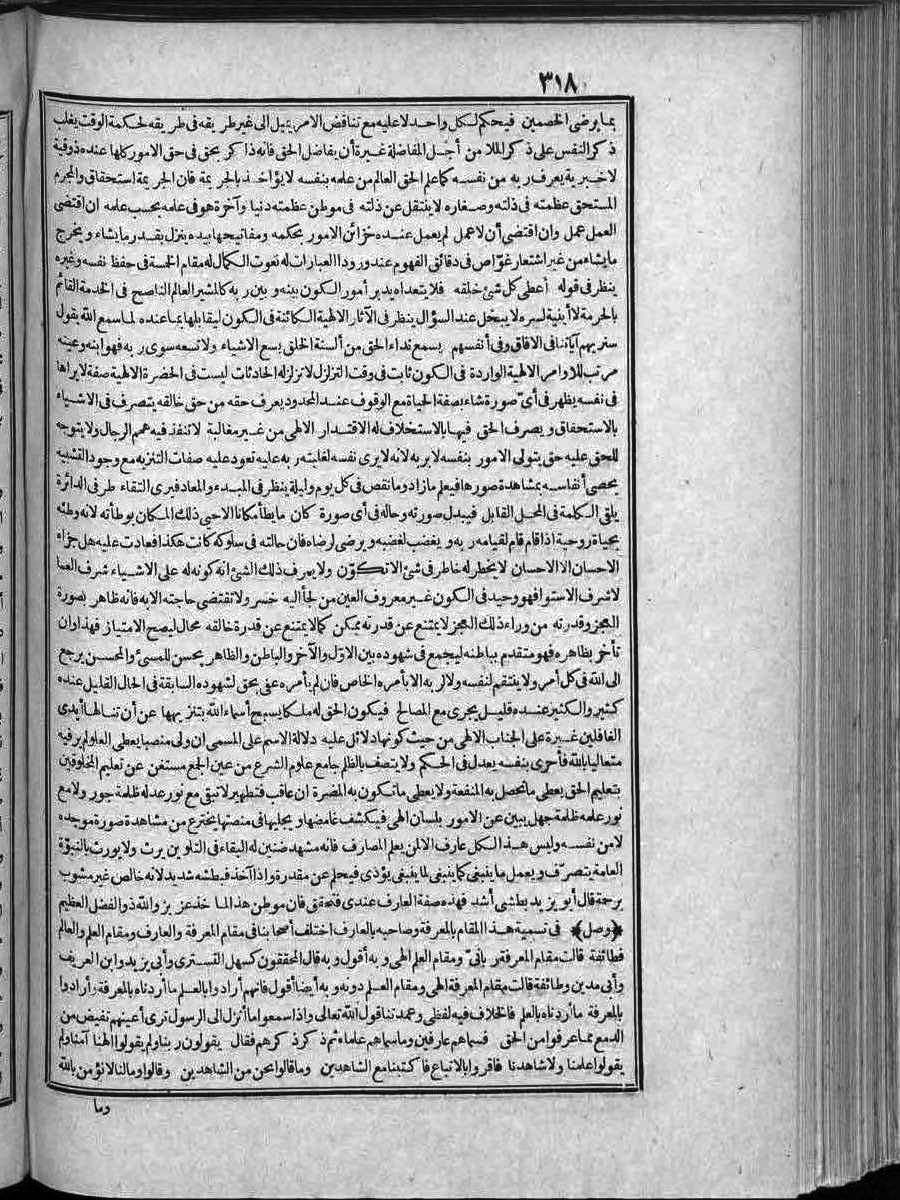 ٣١٨
بما يرضى الخصمين فيحكم لكل واحد لا عليه مع تناقض الامر يميل الى غير طريقه فى طريقه لحكمة الوقت يغلب
ذكر النفس على ذكر الملا من أجل المفاضلة غيرة أن يفاضل الحق فانه ذاكر بحق فى حق الامور كلها عنده ذوقية
لاخبرية يعرف ربه من نفسه كما علم الحق العالم من علمه بنفسه لا يؤاخذ بالجريمة فان الجريمة استحقاق والمجرم
المستحق عظمته فى ذلته وصغاره لا ينتقل عن ذلته فى موطن عظمته دنيا وآخرة هو فى علمه بحسب علمه ان اقتضى
العمل عمل وان اقتضى أن لا عمل لم يعمل عنده خزائن الامور بحكمه ومفاتيحها بيده ينزل بقدر ما يشاء ويخرج
ما يشاء من غير اشتعار غوّاص فى دقائق الفهوم عند ورود العبارات له نعوت الكمال له مقام الخمسة فى حفظ نفسه وغيره
ينظر فى قوله أعطى كل شئ خلقه فلا يتعداه يدبر أمور الكون بينه وبين ربه كالمشير العالم الناصح فى الخدمة القائم
بالحرمة لا أينية لسره لا يبخل عند السؤال ينظر فى الآثار الالهية الكائنة فى الكون ليقابلها بما عنده لما سمع الله يقول
سنريهم آياتنا فى الافاق وفى أنفسهم يسمع نداء الحق من ألسنة الخلق يسع الاشياء ولا تسعه سوى ربه فهو ابنه وعينه
مرتب للاوامر الالهية الواردة فى الكون ثابت فى وقت التزلزل لا تزلزله الحادثات ليست فى الحضرة الالهية صفة لا يراها
فى نفسه يظهر فى أىّ صورة شاء بصفة الحياة مع الوقوف عند المحدود يعرف حقه من حق خالقه يتصرف فى الاشياء
بالاستحقاق ويصرف الحق فيها بالاستخلاف له الاقتدار الالهى من غير مغالبة لا تنفذ فيه همم الرجال ولا يتوجه
للحق عليه حق يتولى الامور بنفسه لا بربه لانه لا يرى نفسه لغلبته ربه عليه تعود عليه صفات التنزيه مع وجود التشبيه
يحصى أنفاسه بمشاهدة صورها فيعلم ما زاد وما نقص فى كل يوم وليلة ينظر فى المبدء والمعاد فيرى التقاء طرفى الدائرة
يلقى الكلمة فى المحل القابل فيبدل صورته وحاله فى أى صورة كان ما يطأ مكانا الا حيى ذلك المكان بوطأته لانه وطئه
بحياة روحية اذا قام قام لقيامه ربه ويغضب لغضبه ويرضى لرضاه فان حالته فى سلوكه كانت هكذا فعادت عليه هل جزاء
الاحسان الا الاحسان لا يخطر له خاطر فى شئ الا تكوّن ولا يعرف ذلك الشئ انه كونه له على الاشياء شرف العما
لا شرف الاستوا فهو وحيد فى الكون غير معروف العين من لجأ اليه خسر ولا تقتضى حاجته الا به فانه ظاهر بصورة
العجز وقدرته من وراء ذلك العجز لا يمتنع عن قدرته ممكن كما لا يمتنع عن قدرة خالقه محال ليصح الامتياز فهذا وان
تأخر بظاهره فهو متقدم بباطنه ليجمع فى شهوده بين الاوّل والآخر والباطن والظاهر يحسن للمسئ والمحسن يرجع
الى الله فى كل أمر ولا ينتقم لنفسه ولا لربه الا بأمره الخاص فان لم يأمره عفى بحق لشهوده السابقة فى الحال القليل عنده
كثير والكثير عنده قليل يجرى مع المصالح فيكون الحق له ملكا يسبح أسماء الله بتنزيهها عن أن تنالها أيدى
الغافلين غيرة على الجناب الالهى من حيث كونها دلائل عليه دلالة الاسم على المسمى ان ولى منصبا يعطى العلو لم ير فيه
متعاليا بالله فأحرى بنفسه يعدل فى الحكم ولا يتصف بالظلم جامع علوم الشرع من عين الجمع مستغن عن تعليم المخلوقين
بتعليم الحق يعطى ما تحصل به المنفعة ولا يعطى ما تكون به المضرة ان عاقب فتطهير لا تبقى مع نور عدله ظلمة جور ولا مع
نور علمه ظلمة جهل يبين عن الامور بلسان الهى فيكشف غامضها ويجليها فى منصتها يخترع من مشاهدة صورة موجده
لا من نفسه وليس هذا لكل عارف الا لمن يعلم المصارف فانه مشهد ضنين له البقاء فى التلوين يرث ولا يورث بالنبوّة
العامة يتصرّف ويعمل ما ينبغى كما ينبغى لما ينبغى يؤذى فيحلم عن مقدرة واذا آخذ فبطشه شديد لانه خالص غير مشوب
برحمة قال أبو يزيد بطشى أشد فهذه صفة العارف عندى فتحقق فان موطن هذا المأخذ عزيز والله ذو الفضل العظيم
﴿وصل﴾ فى تسمية هذا المقام بالمعرفة وصاحبه بالعارف اختلف أصحابنا فى مقام المعرفة والعارف ومقام العلم والعالم
فطائفة قالت مقام المعرفة ربانىّ ومقام العلم الهى وبه أقول وبه قال المحققون كسهل التسترى وأبى يزيد وابن العريف
وأبى مدين وطائفة قالت مقام المعرفة الهى ومقام العلم دونه وبه أيضا أقول فانهم أرادوا بالعلم ما أردناه بالمعرفة وأرادوا
بالمعرفة ما أردناه بالعلم فالخلاف فيه لفظى وعمدتنا قول الله تعالى واذا سمعوا ما أنزل الى الرسول ترى أعينهم تفيض من
الدمع مما عرفوا من الحق فسماهم عارفين وما سماهم علماء ثم ذكر ذكرهم فقال يقولون ربنا ولم يقولوا الهنا آمنا ولم
يقولوا علمنا ولا شاهدنا فاقروا بالاتباع فاكتبنا مع الشاهدين وما قالوا نحن من الشاهدين وقالوا وما لنا لا نؤمن بالله
وما